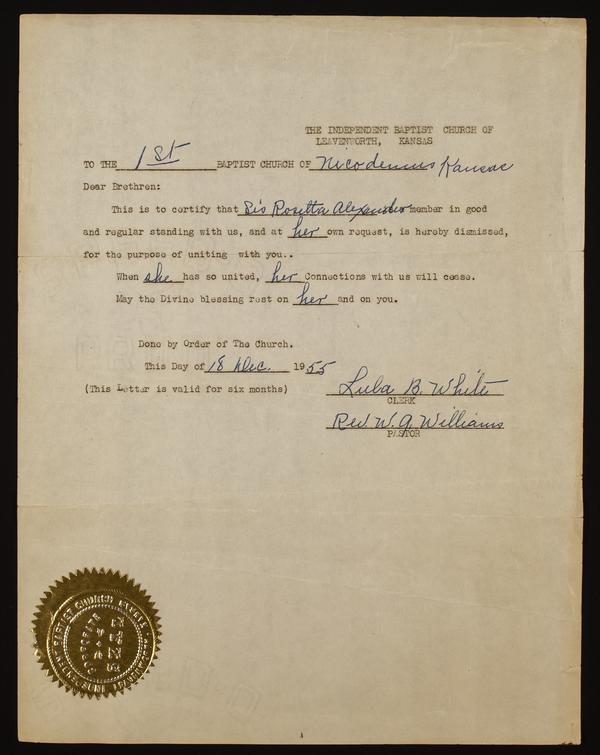 THE INDEPENDENT BAPTIST CHURCH OF
LEAVENWORTH, KANSAS
TO THE 1st BAPTIST CHURCH OF Nicodemus Kansas
Dear Brethren:
This is to certify that Sis Rosetta Alexander member in good
and regular standing with us, and at her own request, is hereby dismissed,
for the purpose of uniting with you..
When she has so united, her Connections with us will cease.
May the Divine blessing rest on her and on you.
Done by Order of The Church.
This Day of 18 Dec. 1955
(This Letter is valid for six months)
Lula B. White
CLERK
Rev. W. A. Williams
PASTOR
BAPTIST CHURCH
CORPORATE